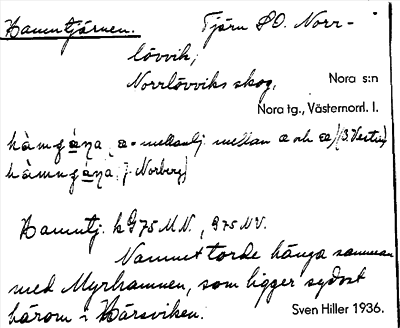 Hamntjärnen. Tjärn SO. Norr-
lövvik,
Norrlövviks skog.
Nora s:n
Nora tg., Västernorrl. l.
mellanlj. mellan a och
J. Norberg)
Hamntj. k G75 M.N., G75 N.V.
Namnet torde hänga samman
med Myrhamnen, som ligger sydost
härom i Hårsviken.
Sven Hiller 1936.